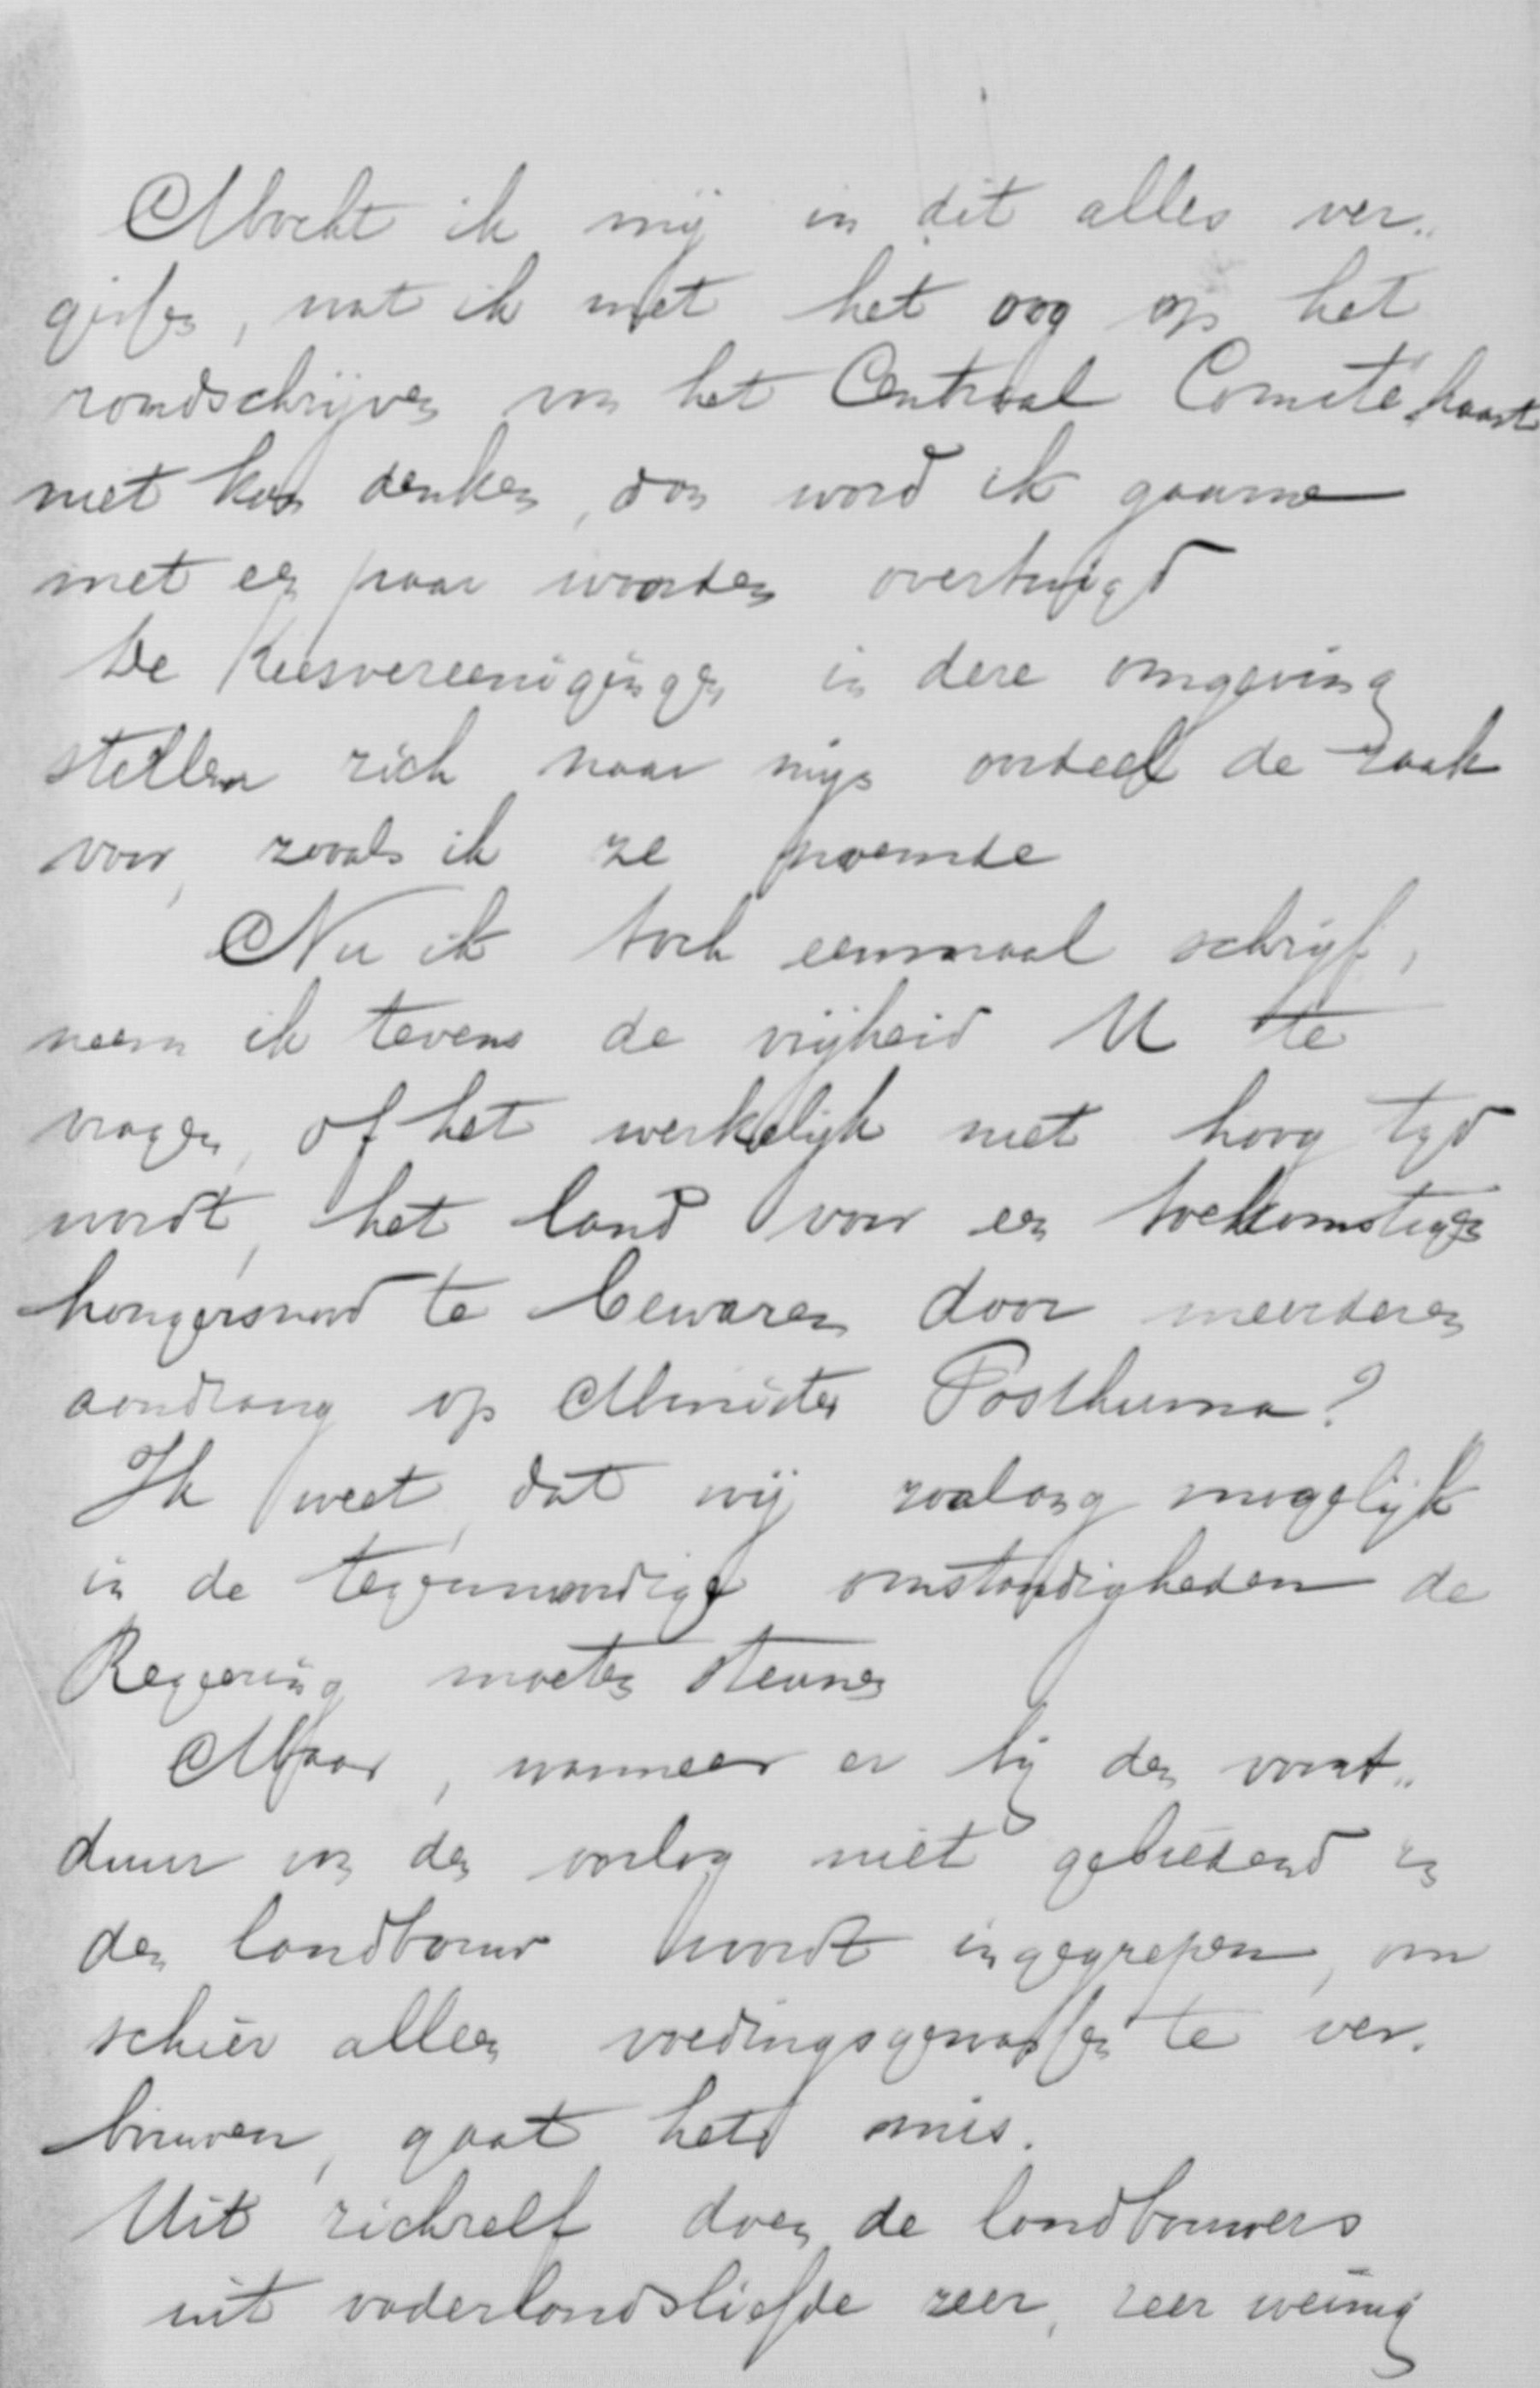 Mocht ik mij in dit alles ver„
gissen, wat ik met het oog op het
rondschrijven van het Centraal Comité haast
niet kan denken, dan word ik gaarne
met een paar woorden overtuigd
De Kiesvereenigingen in deze omgeving
stellen zich naar mijn oordeel de zaak
voor, zooals ik ze noemde
Nu ik toch eenmaal schrijf,
neem ik tevens de vrijheid U te
vragen, of het werkelijk niet hoog tijd
wordt, het land voor een toekomstigen
hongersnood te bewaren door meerderen
aandrang op Minister Posthuma?
Ik weet, dat wij zoolang mogelijk
in de tegenwoordige omstandigheden de
Regeering moeten steunen
Maar, wanneer er bij den voort„
duur van den oorlog niet gebiedend in
den landbouw wordt ingegrepen, om
schier alleen voedingsgewassen te ver.
bouwen, gaat het mis.
Uit zichzelf doen de landbouwers
uit vaderlandsliefde zeer, zeer weinig